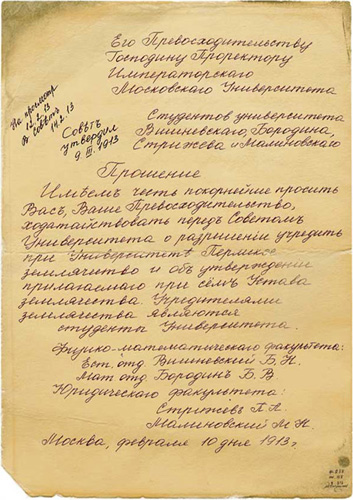 Его Превосходительству
Господину Проректору
Императорскаго
Московскаго Университета
12.2.13
14.2.13
Советъ
утвердил
9.III.1913
Студентов университета
Вишневскаго, Бородина,
Стрижева и Малиновскаго
Прошение
Имѣемъ честь покорнейше просить
Васъ, Ваше Превосходительство,
ходатайствовать передъ Советомъ
Университета о разрешении учредить
при Университетѣ Пермское
землячество и об утверждении
прилагаемаго при сёмъ Устава
землячества. Учредителями
землячества являются
студенты Университета.
Физико-математическаго факультета:
Ест. отд. Вишневский Б. Н.
Мат. отд. Бородинъ Б. В.
Юридическаго факультета:
Стрижевъ П. А.
Малиновский М. Н.
Москва, февраля 10 дня 1913 г.